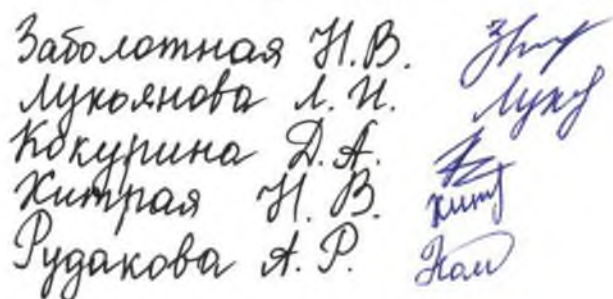 Заболотная Н.В.
Лукоянова Л.И.
Кокурина Д.А.
Хитрая Н.В.
Рудакова А.Р.